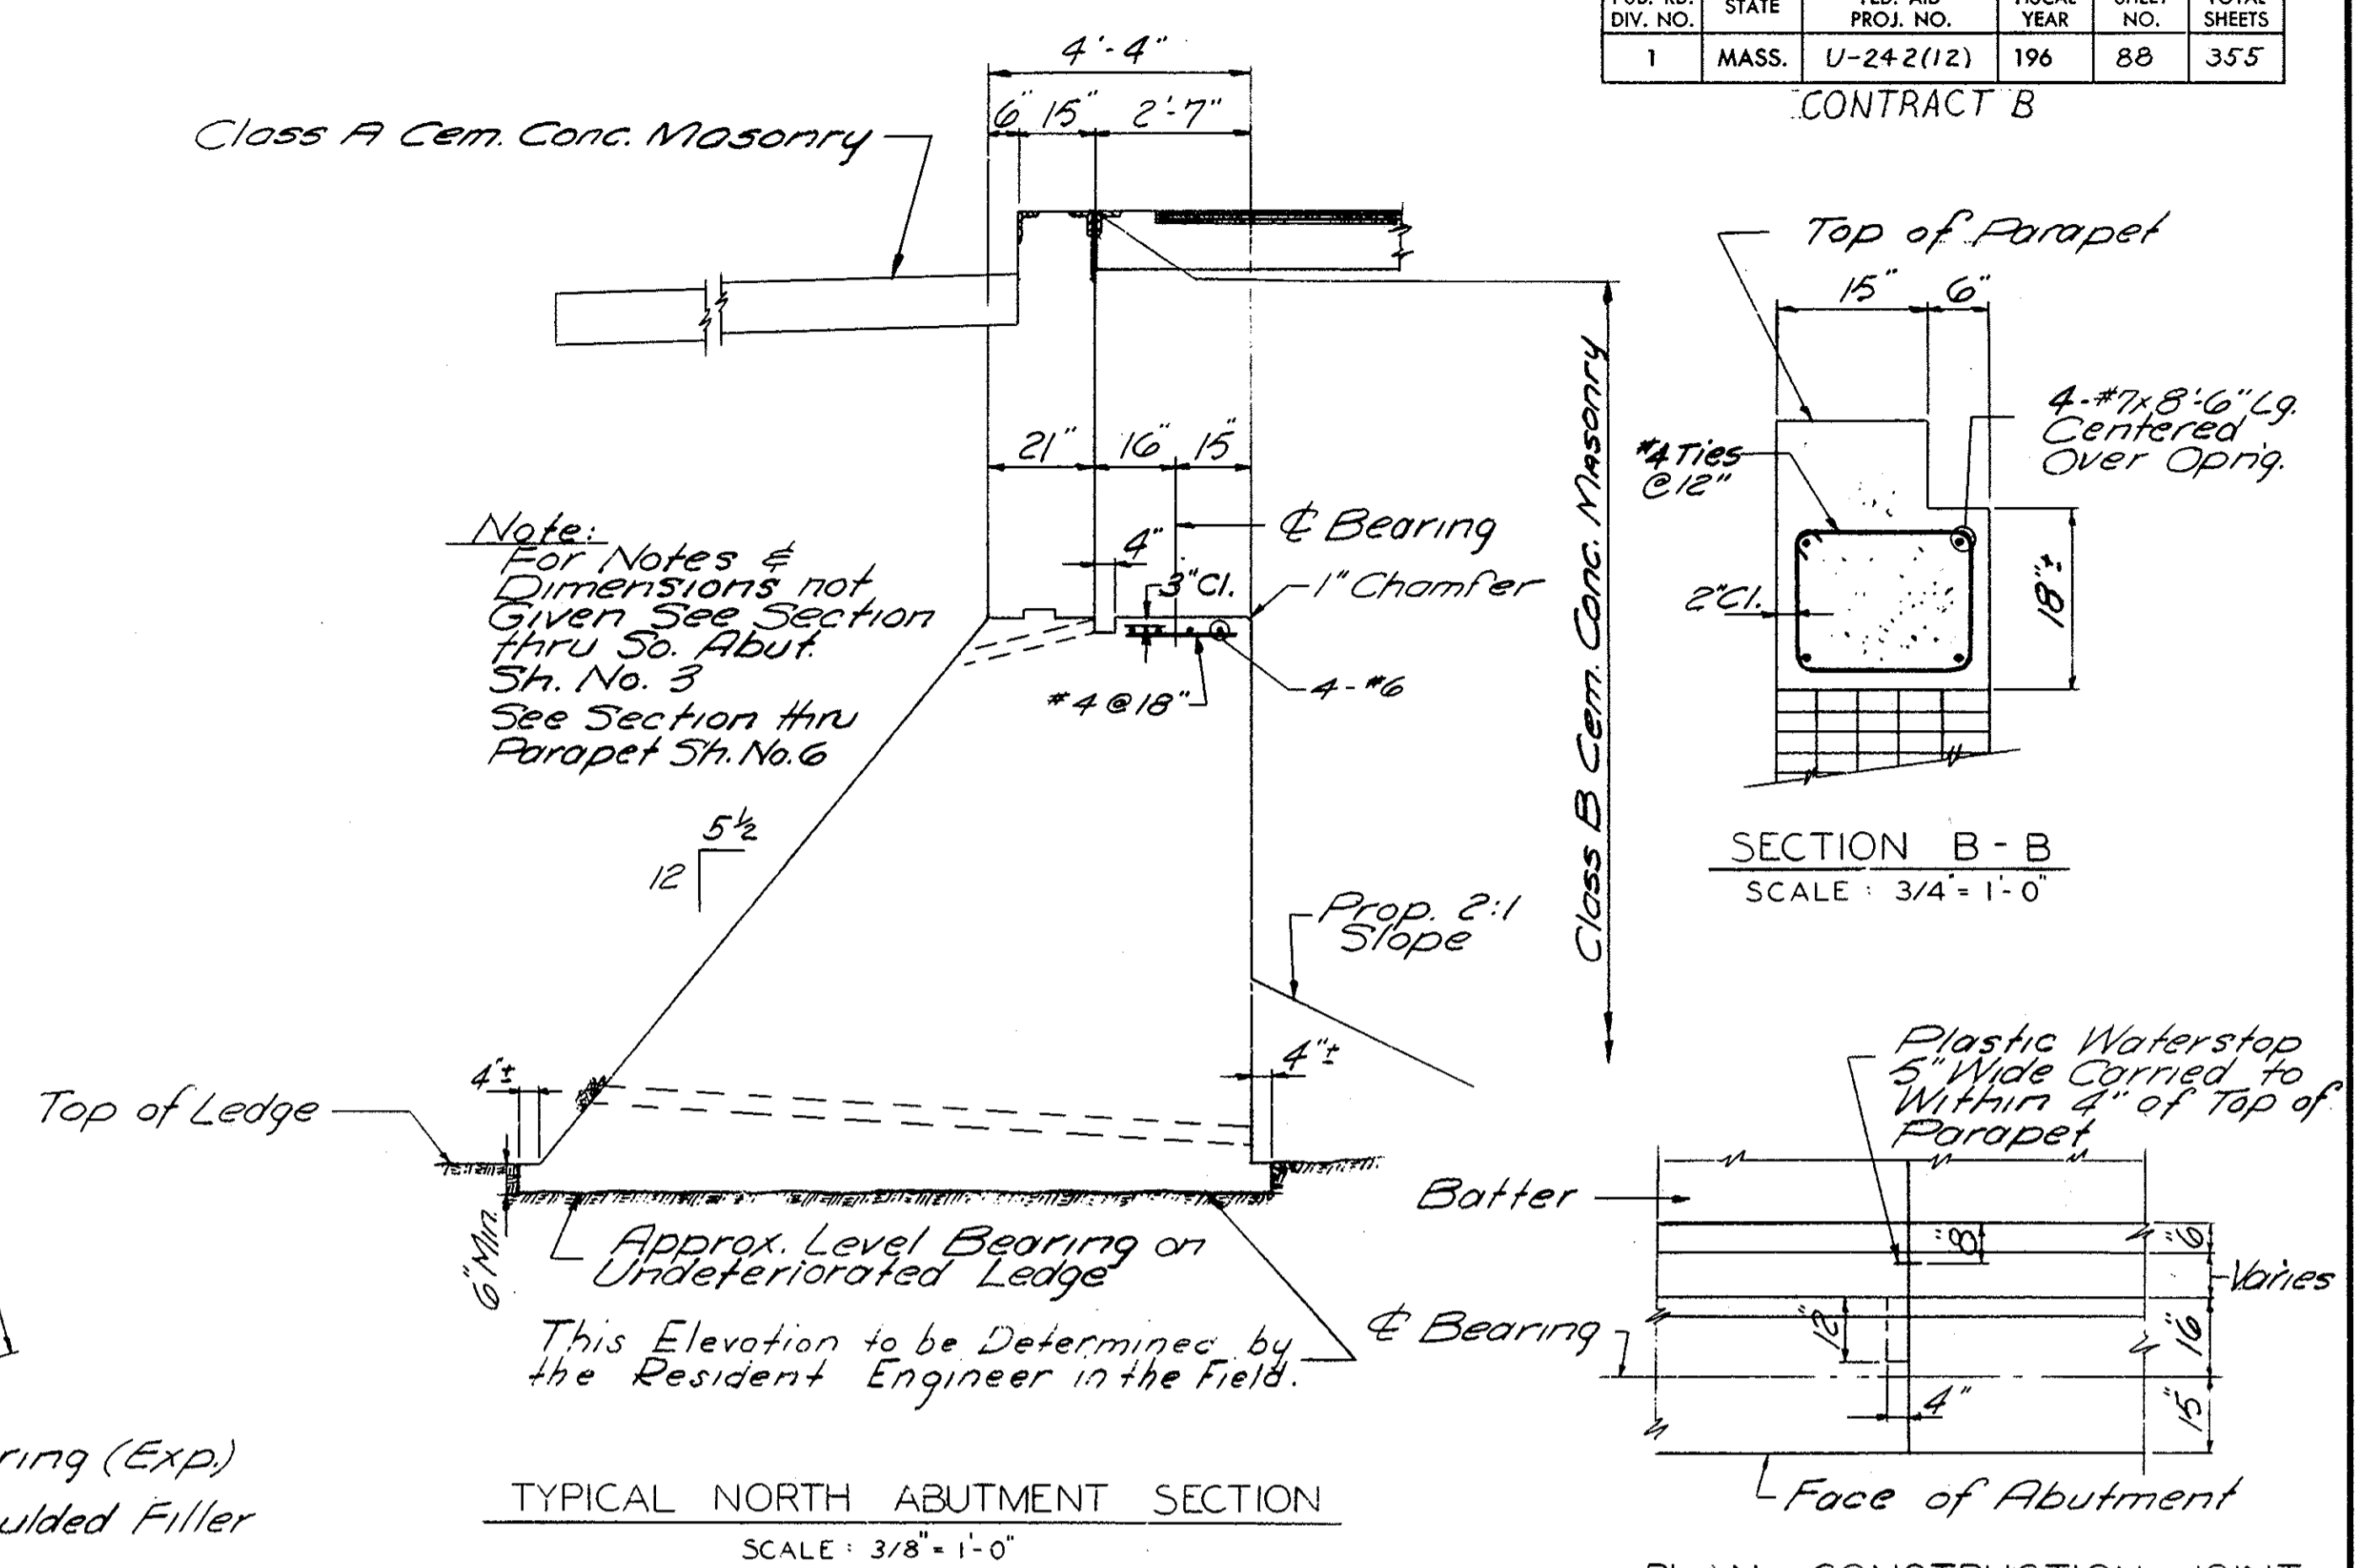 DIV. NO. STATE PROJ. NO. YEAR NO. SHEETS
1 MASS. U-242(12) 196 88 355
CONTRACT B
4'-4"
6" 15" 2'-7"
Class A Cem. Conc. Masonry
21" 16" 15"
℄ Bearing
4"
3"Cl.
1" Chamfer
#4 @ 18"
4-#6
Note:
For Notes &
Dimensions not
Given See Section
thru So. Abut.
Sh. No. 3
See Section thru
Parapet Sh. No. 6
5½
12
Class B Cem. Conc. Masonry
Prop. 2:1
Slope
4"±
4"±
Top of Ledge
6" Min.
Approx. Level Bearing on
Undeteriorated Ledge
This Elevation to be Determined by
the Resident Engineer in the Field.
TYPICAL NORTH ABUTMENT SECTION
SCALE: 3/8" = 1'-0"
ring (Exp.)
ulded Filler
Top of Parapet
15" 6"
4-#7x8'-6" Lg.
Centered
Over Opn'g.
#4 Ties
@ 12"
2"Cl.
18"±
SECTION B-B
SCALE: 3/4" = 1'-0"
Plastic Waterstop
5" Wide Carried to
Within 4" of Top of
Parapet
Batter
8"
6"
Varies
12"
16"
℄ Bearing
4"
15"
Face of Abutment
PLAN CONSTRUCTION JOINT